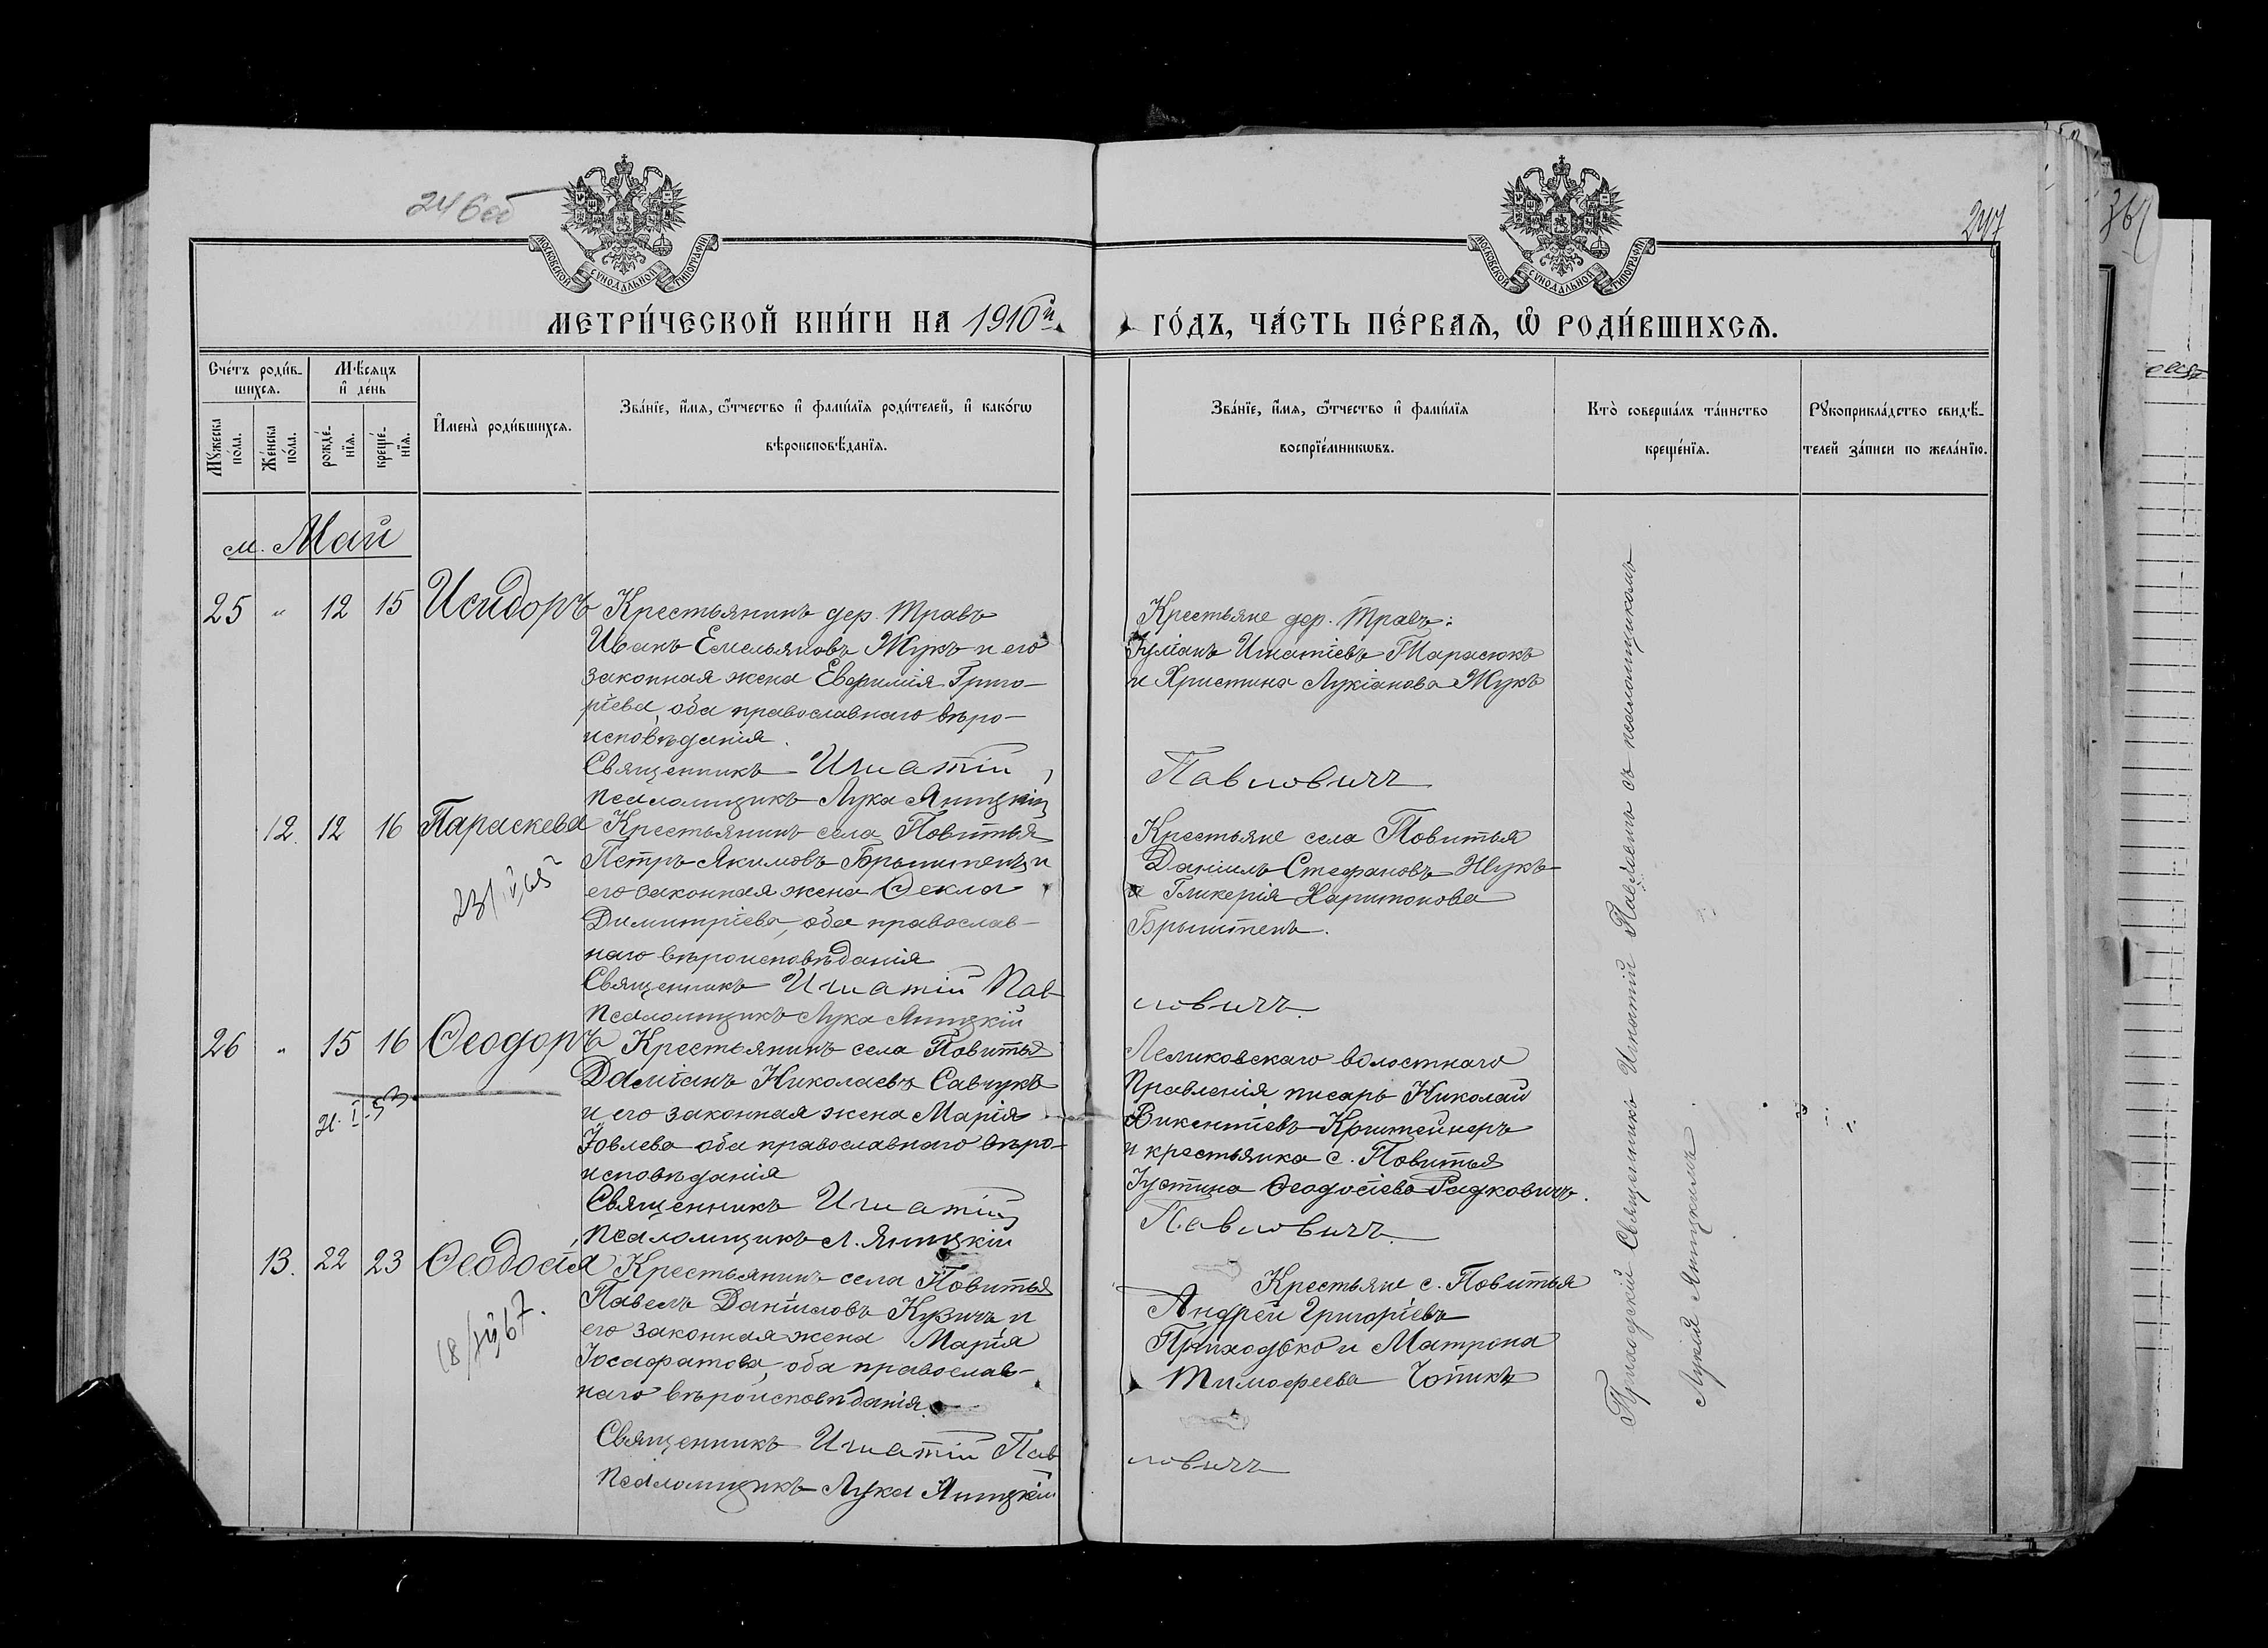 246об
247
МОСКОВСКОЙ СѴНОДАЛЬНОЙ ТИПОГРАФІИ
МОСКОВСКОЙ СѴНОДАЛЬНОЙ ТИПОГРАФІИ
МЕТРИ́ЧЕСКОЙ КНИ́ГИ НА 1910й
ГО́ДЪ, ЧА́СТЬ ПЕ́РВАѦ, Ѡ РОДИ́ВШИХСѦ.
Сче́тъ роди́в-
шихсѧ.
Мꙋжеска
по́ла.
Же́нска
по́ла.
М<ѣсѧцъ
и де́нь
рожде́-
нїѧ.
креще́-
нїѧ.
Имена̀ роди́вшихсѧ.
Зва́нїе, и́мѧ, ѻ҆́тчество и фами́лїѧ роди́телей, и како́гѡ
вѣроисповѣданїѧ.
Зва́нїе, и́мѧ, ѻ҆́тчество и фами́лїѧ
воспрїе́мникѡвъ.
Кто̀ соверша́лъ та́инство
креще́нїѧ.
Рꙋкоприкла́дство свидѣ-
телей за́писи по жела́нїю.
м. Май
25 " 12 15 Исидоръ Крестьянинъ дер. Травъ
Иванъ Емельяновъ Жукъ и его
законная жена Евфимія Григо-
ріева, оба православнаго вѣро-
исповѣданія.
Священникъ Игнатій
Псаломщикъ Лука Яницкій
Крестьяне дер. Травъ:
Іуліанъ Игнатіевъ Тарасюкъ
и Христина Лукіанова Жукъ
Павловичъ
12. 12 16 Параскева Крестьянинъ села Повитья
Петръ Якимовъ Брышпенъ и
его законная жена Ѳекла
Димитріева, оба православ-
наго вѣроисповѣданія
Священникъ Игнатій Пав-
Псаломщикъ Лука Яницкій
Крестьяне села Повитья
Даніилъ Стефановъ Жукъ
и Гликерія Харитонова
Брышпенъ.
ловичъ.
26 " 15 16 Ѳеодоръ Крестьянинъ села Повитья
Даміанъ Николаевъ Савчукъ
и его законная жена Марія
Іовлева оба православнаго вѣро-
исповѣданія
Священникъ Игнатій
Псаломщикъ Л. Яницкій
Леликовскаго волостнаго
Правленія писарь Николай
Викентіевъ
и крестьянка с. Повитья
Іустина Ѳеодосіева Радковичъ.
Павловичъ.
13. 22 23 Ѳеодосія Крестьянинъ села Повитья
Павелъ Даніиловъ Кузичъ и
его законная жена Марія
Іосафатова, оба православ-
наго вѣроисповѣданія.
Священникъ Игнатій Пав
Псаломщикъ Лука Яницкій
Крестьяне с. Повитья
Андрей Григоріевъ
Приходько и Матрона
Тимофеева
ловичъ
Приходскій Священникъ Игнатій Павловичъ съ псаломщикомъ
Лукой Яницкимъ